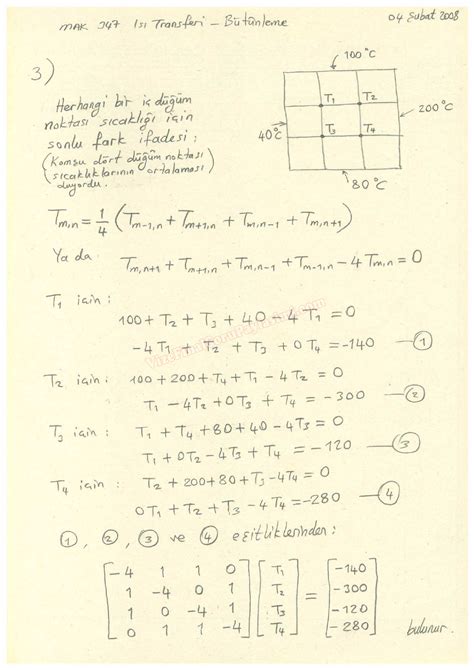 MAK 347 Isı Transferi - Bütünleme
04 Şubat 2008
3)
Herhangi bir iç düğüm
noktası sıcaklığı için
sonlu fark ifadesi:
(Komşu dört düğüm noktası
sıcaklıklarının ortalaması)
100 °C
T1 T2
200 °C
40 °C
T3 T4
80 °C
Tm,n = 1/4 (Tm-1,n + Tm+1,n + Tm,n-1 + Tm,n+1)
Ya da Tm,n+1 + Tm+1,n + Tm,n-1 + Tm-1,n - 4Tm,n = 0
T1 için:
100 + T2 + T3 + 40 - 4T1 = 0
-4T1 + T2 + T3 + 0T4 = -140 — 1
T2 için: 100 + 200 + T4 + T1 - 4T2 = 0
T1 - 4T2 + 0T3 + T4 = -300 — 2
T3 için: T1 + T4 + 80 + 40 - 4T3 = 0
T1 + 0T2 - 4T3 + T4 = -120 — 3
T4 için: T2 + 200 + 80 + T3 - 4T4 = 0
0T1 + T2 + T3 - 4T4 = -280 — 4
1, 2, 3 ve 4 eşitliklerinden:
-4 1 1 0 T1 -140
1 -4 0 1 T2 -300
1 0 -4 1 T3 = -120
0 1 1 -4 T4 -280
bulunur.